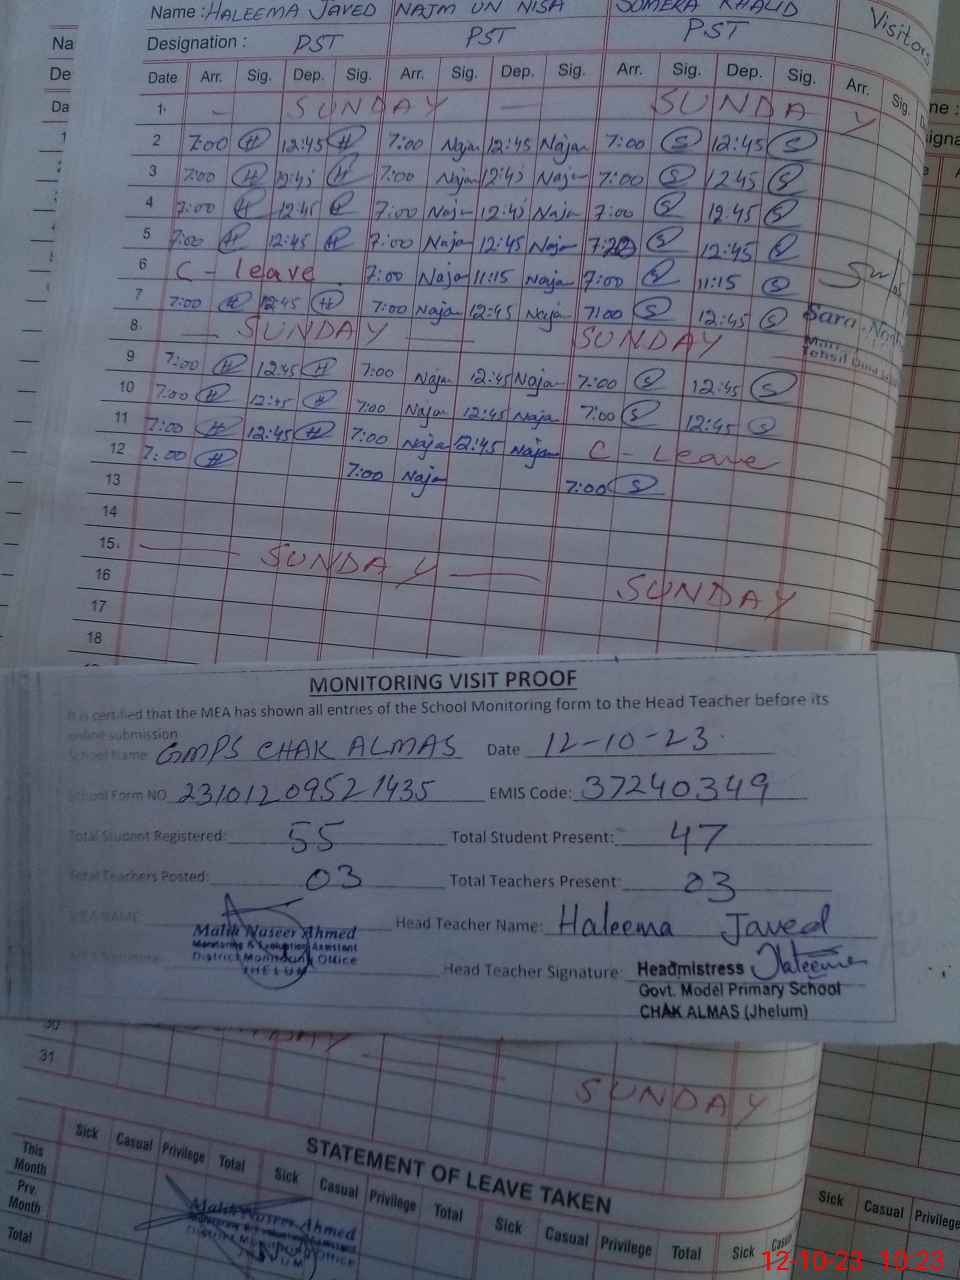 Name : HALEEMA JAVED NAJM UN NISA SUMERA KHALID
Visitors
Designation : PST PST PST
Date Arr. Sig. Dep. Sig. Arr. Sig. Dep. Sig. Arr. Sig. Dep. Sig. Arr. Sig.
1. SUNDAY SUNDAY
2 7:00 H 12:45 H 7:00 Najm 12:45 Najm 7:00 S 12:45 S
3 7:00 H 12:45 H 7:00 Najm 12:45 Najm 7:00 S 12:45 S
4 7:00 H 12:45 H 7:00 Najm 12:45 Najm 7:00 S 12:45 S
5 7:00 H 12:45 H 7:00 Najm 12:45 Najm S 12:45 S
6 C - leave 7:00 Najm 11:15 Najm 7:00 S 11:15 S
7 7:00 H 12:45 H 7:00 Najm 12:45 Najm 7:00 S 12:45 S
Sara
Tehsil
8. SUNDAY SUNDAY
9 7:00 H 12:45 H 7:00 Najm 12:45 Najm 7:00 S 12:45 S
10 7:00 H 12:45 H 7:00 Najm 12:45 Najm 7:00 S 12:45 S
11 7:00 H 12:45 H 7:00 Najm 12:45 Najm C - Leave
12 7:00 H 7:00 Najm 7:00 S
13
14
15. SUNDAY SUNDAY
16
17
18
MONITORING VISIT PROOF
It is certified that the MEA has shown all entries of the School Monitoring form to the Head Teacher before its
online submission
School Name: GMPS CHAK ALMAS Date 12-10-23.
School Form NO 23101209521435 EMIS Code: 37240349
Total Student Registered: 55 Total Student Present: 47
Total Teachers Posted: 03 Total Teachers Present: 03
MEA NAME Head Teacher Name: Haleema Javed
Malik Naseer Ahmed
Monitoring & Evaluation Assistant
District Monitoring Office
JHELUM
Head Teacher Signature: Headmistress Haleema
Govt. Model Primary School
CHAK ALMAS (Jhelum)
30
31
SUNDAY
STATEMENT OF LEAVE TAKEN
Sick Casual Privilege Total Sick Casual Privilege Total Sick Casual Privilege Total Sick Casual
This Month
Prv. Month
Total
Malik Naseer Ahmed
Sick Casual Privilege
12-10-23 10:23